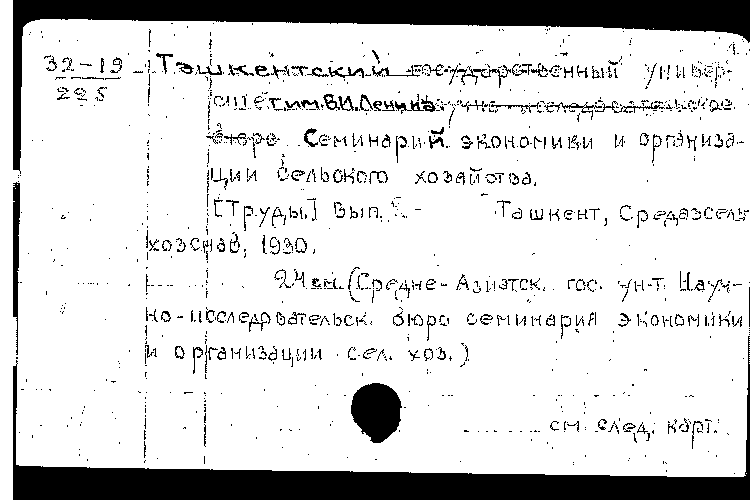 1.
32-19 Ташкентский государственный универ-
225 ситет им. В.И. Ленина. Научно-исследовательское
бюро Семинарий экономики и организа-
ции сельского хозяйства.
[Труды.] Вып. - Ташкент, Средазсель-
хозснаб, 1930.
24 см. (Средне-Азиатск. гос. ун-т. Науч-
но-исследовательск. бюро семинария экономики
и организации сел. хоз.)
см. след. карт.